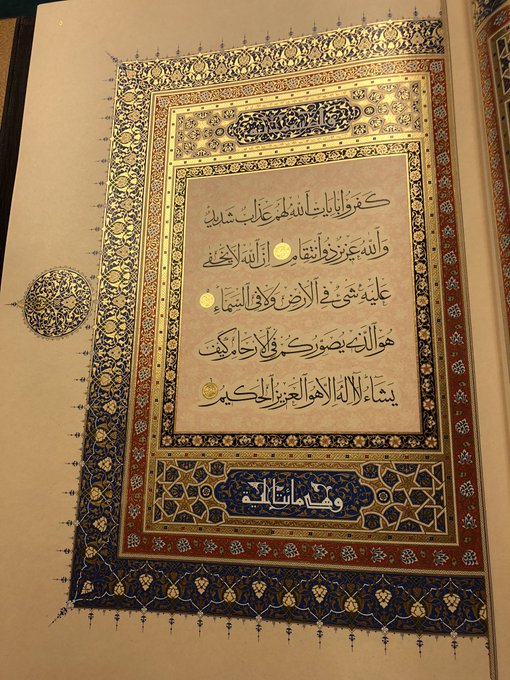 كفروا بايات الله لهم عذاب شديد
والله عزيز ذو انتقام ان الله لا يخفى
عليه شىء في الارض ولا في السماء
هو الذي يصوركم في الارحام كيف
يشاء لا اله الا هو العزيز الحكيم
وهى مائتا آية